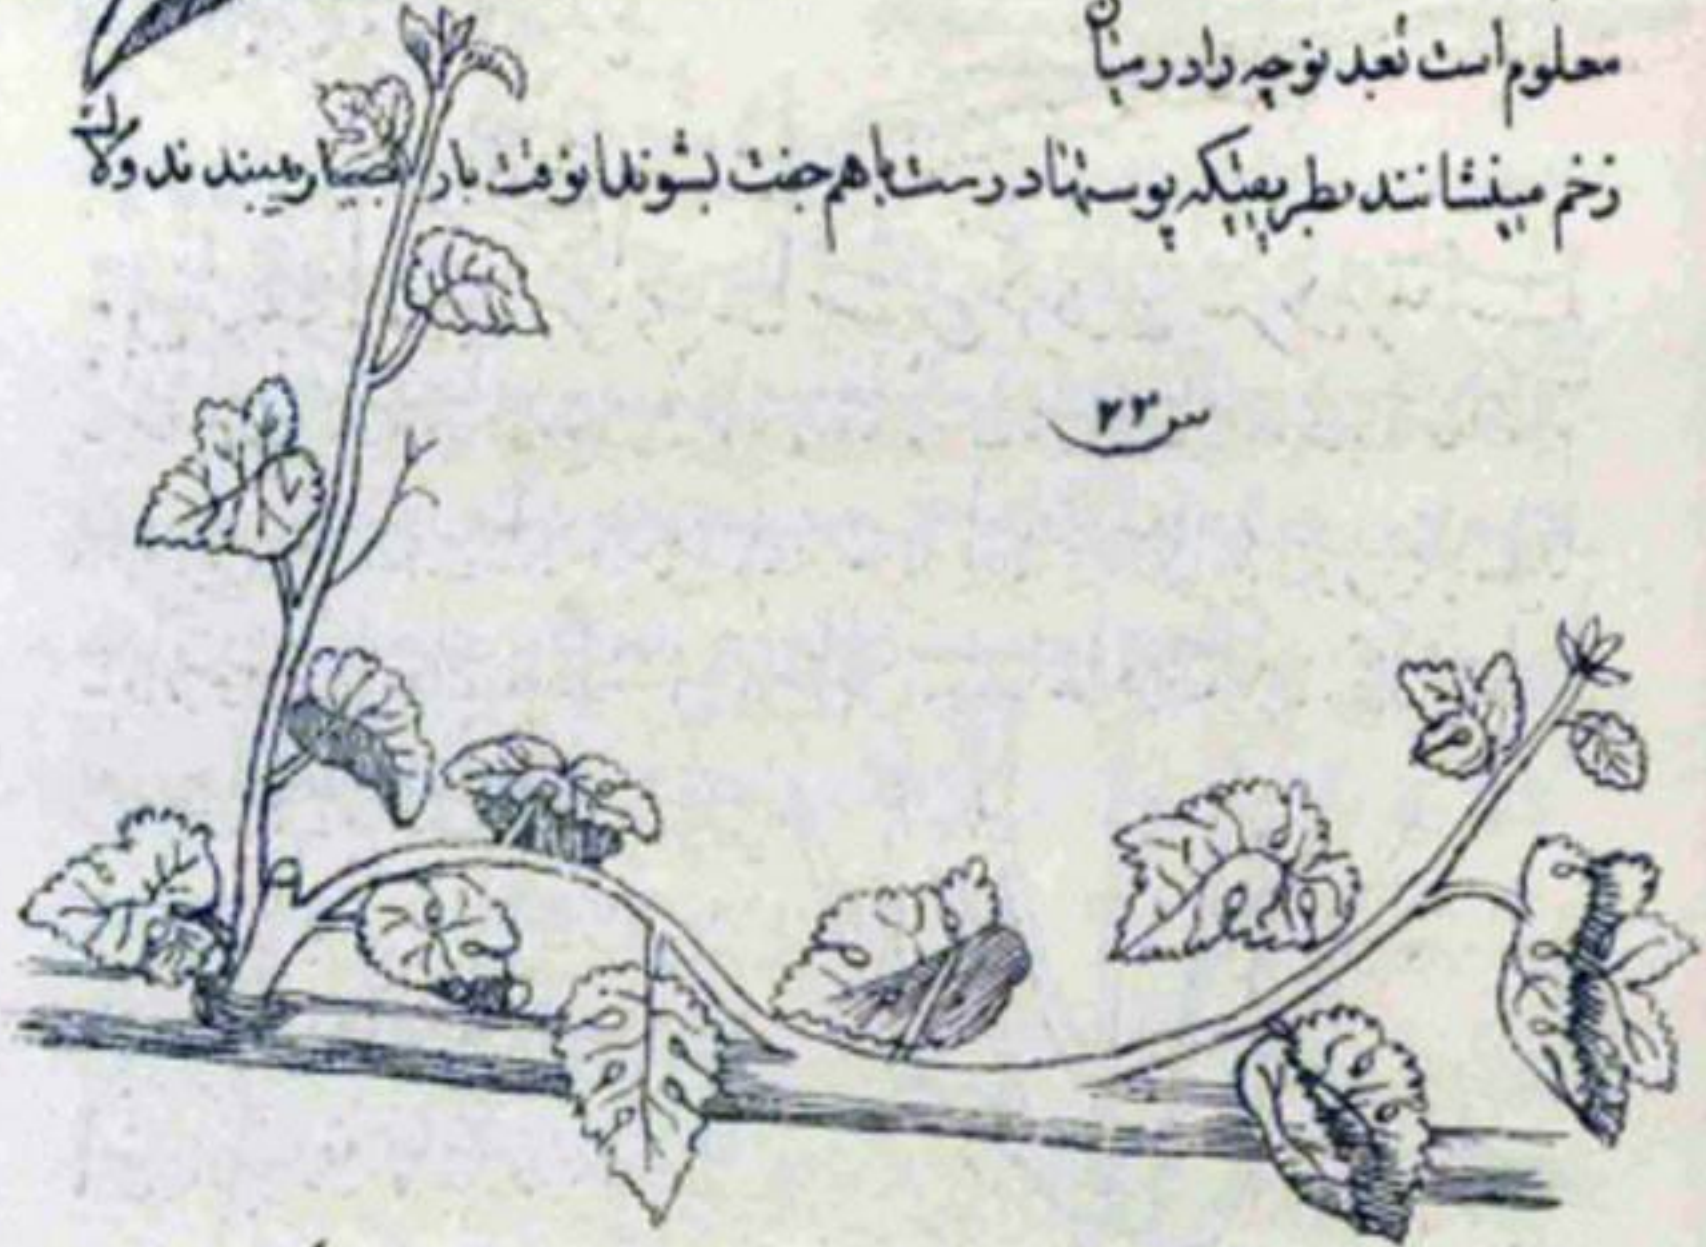 معلوم است بعد نوچه را در میان
زخم مینشانند بطریقیکه پوستها درست باهم جفت بشوند انوقت با ریسمان میبندند و
س ۲۳